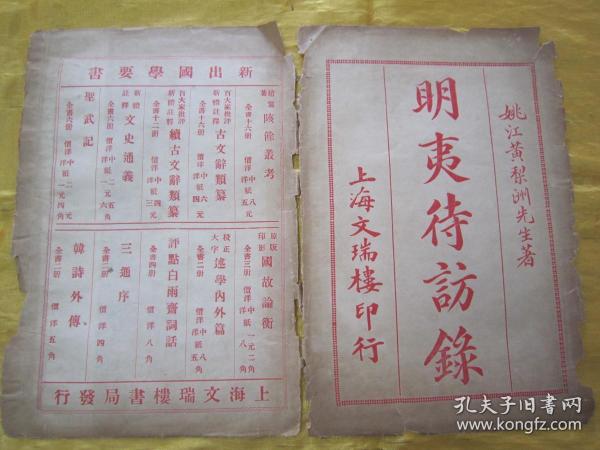 姚江黃梨洲先生著
明夷待訪錄
上海文瑞樓印行
新出國學要書
陔餘叢考
全書十六册 價洋
百大家批評
新體註釋
古文辭類纂
全書十六册 價洋
百大家批評
新體註釋
續古文辭類纂
全書十二册 價洋
新體
註釋
文史通義
全書六册 價洋
聖武記
全書六册 價洋
原版
影印
國故論衡
全書三册 價洋
校正
大字
述學內外篇
全書二册 價洋
評點白雨齋詞話
全書四册 價洋八角
三通序
全書二册 價洋四角
韓詩外傳
全書二册 價洋五角
上海文瑞樓書局發行
孔夫子旧书网
www.kongfz.com